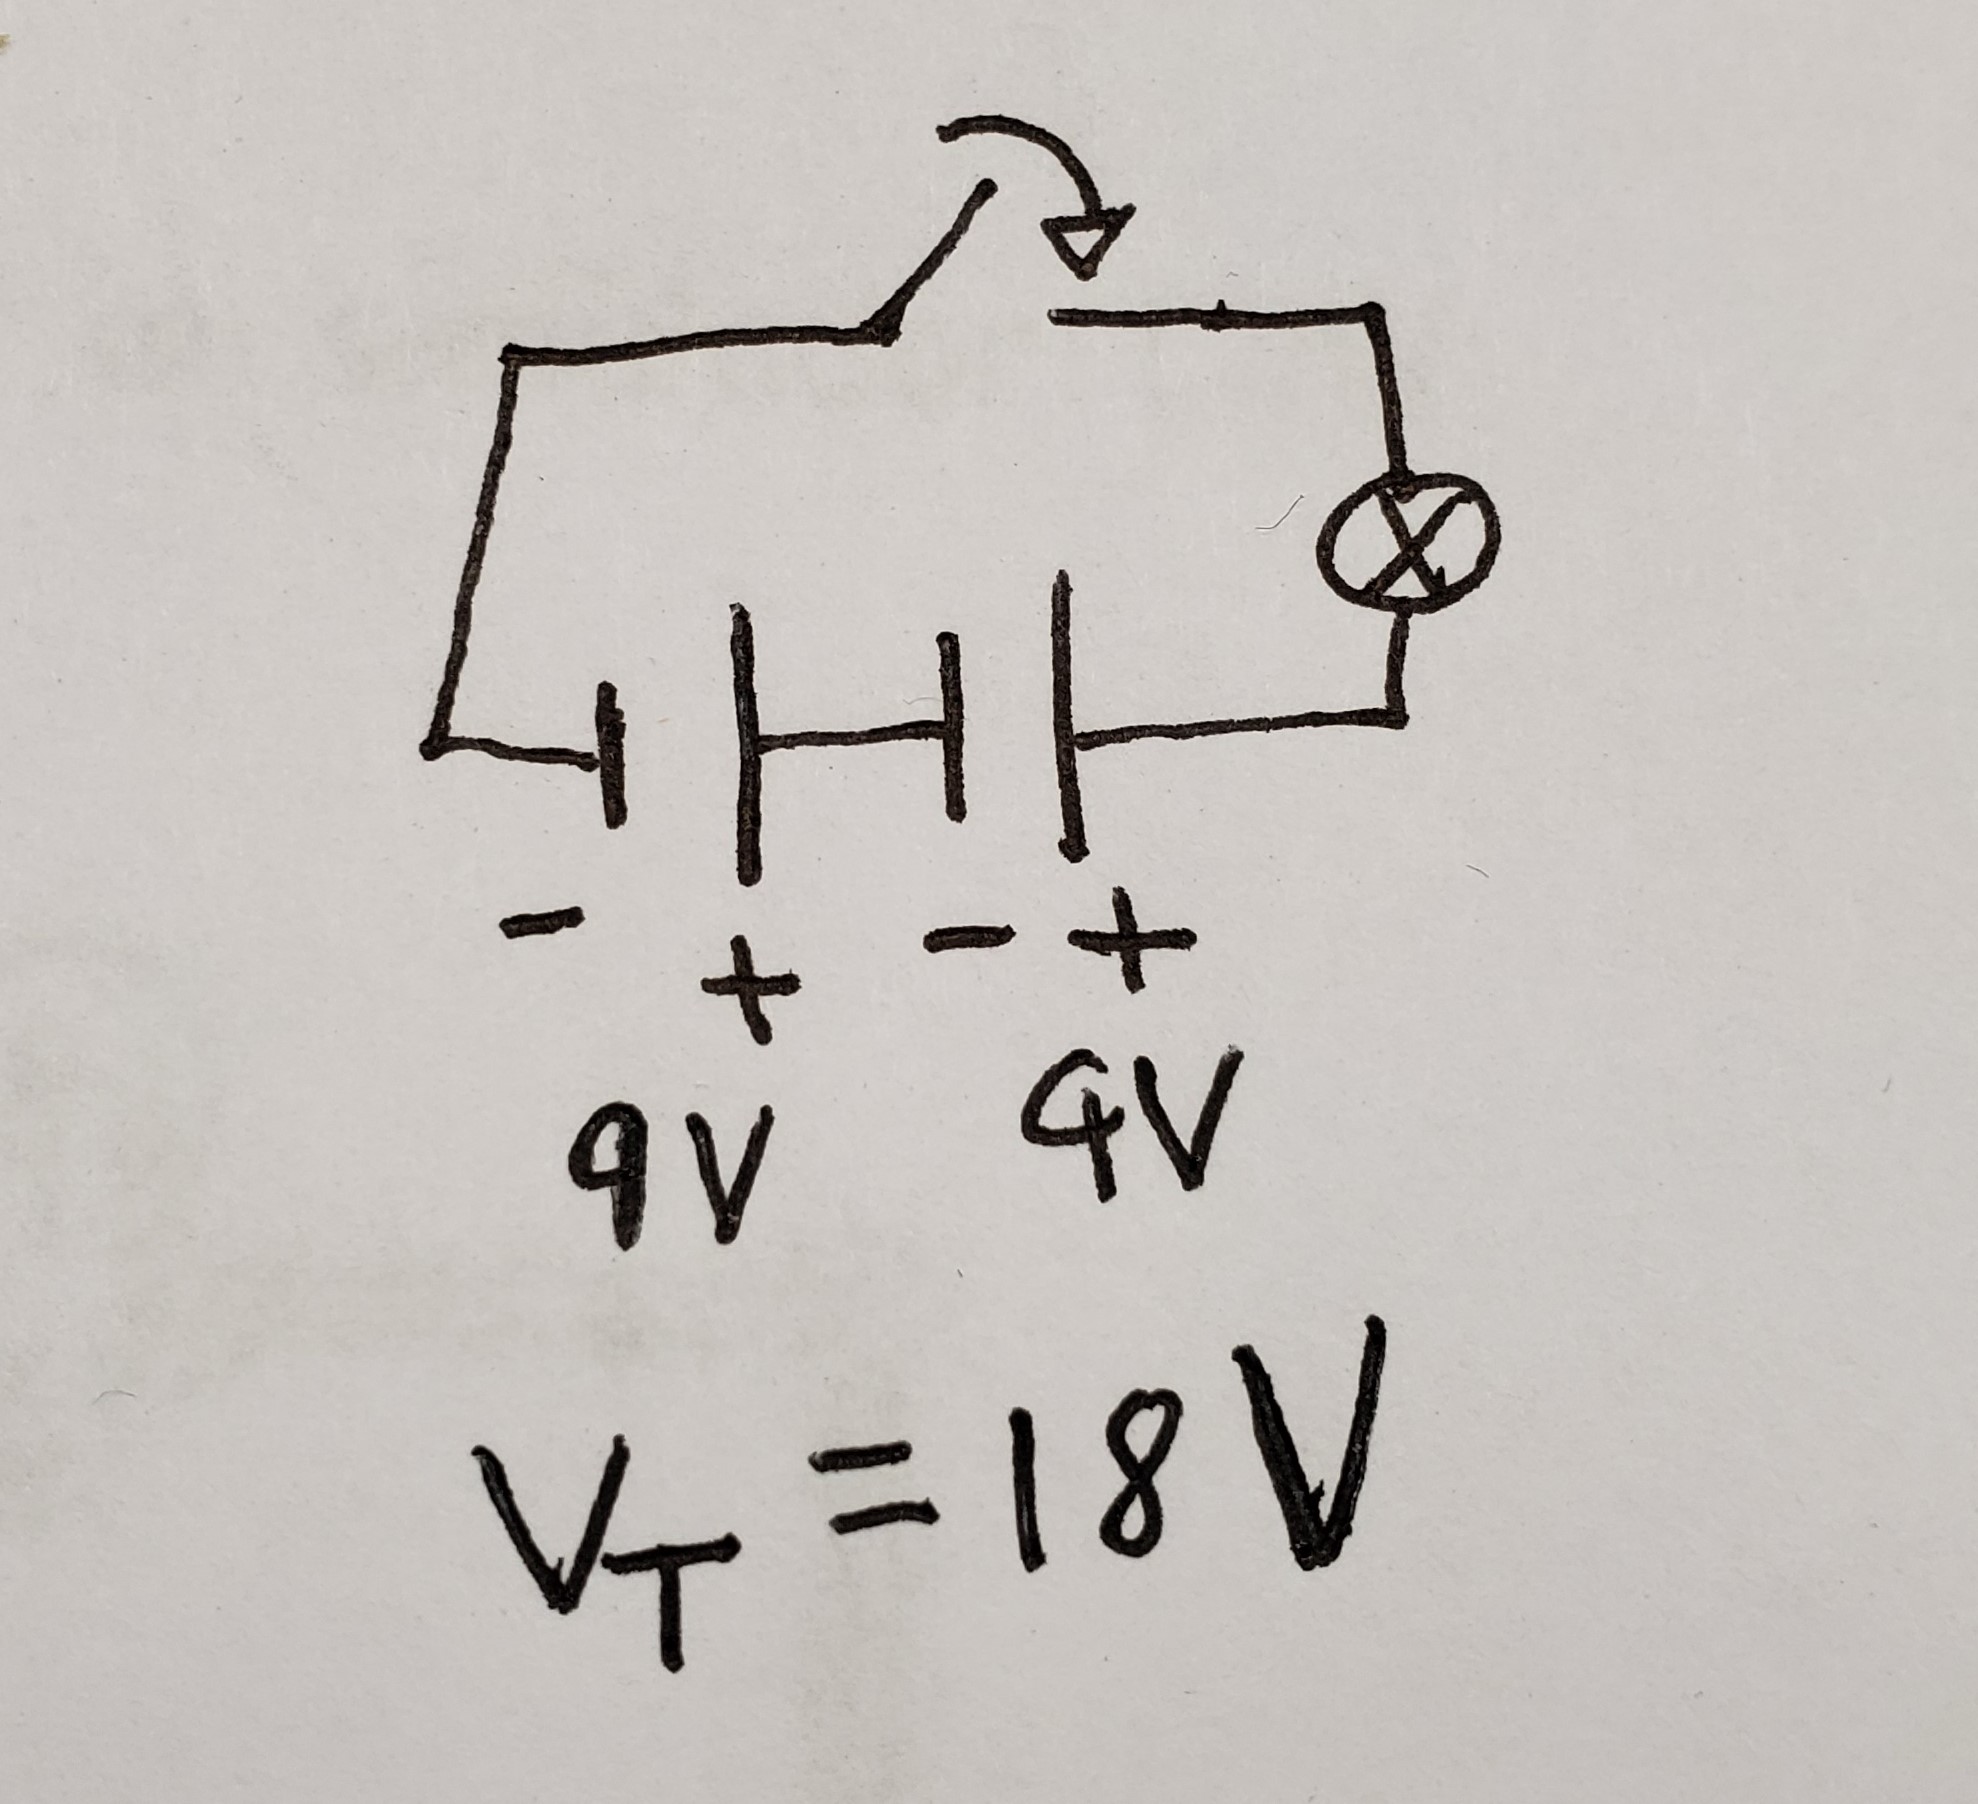 - + - +
9V 9V
V_T = 18V